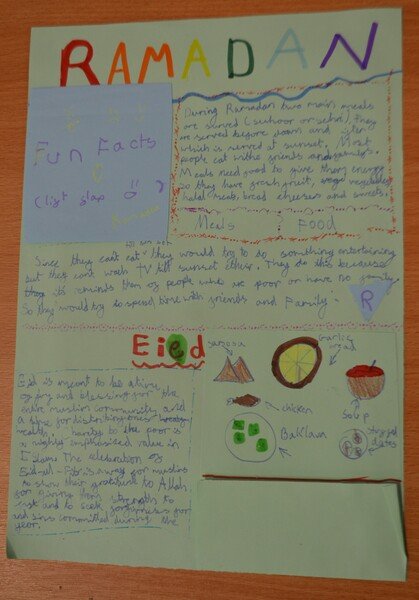 RAMADAN
Fun Facts
During Ramadan two main meals
are served (suhoor or sehri) they
are served before dawn and iftar
which is served at sunset. Most
people eat with friends and family.
Meals need food to give them energy
so they have fresh fruit, vegetables
halal meats, bread cheeses and sweets.
Meals FOOD
till sun set
Since they can't eat they would try to do something entertaining
but they can't wach TV till sunset either. They do this because
it reminds them of people who are poor or have no family
So they would try to spend time with friends and family.
R
Eied
Eid is meant to be a time
of joy and blessing for the
entire muslim community and
a time for distributing
wealth, charity to the poor is
a highly emphasised value in
Islam. The celebration of
Eid-ul-Fitr is a way for muslims
to show their gratitude to Allah
for giving them strength to
fast and to seek forgiveness for
any sins committed during the
year.
samosa
Garlic
bread
chicken
Soup
Baklava
Stuffed
dates